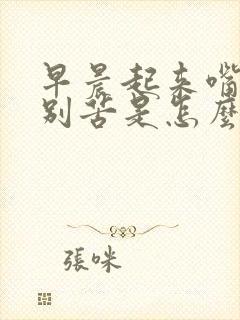 早晨起来嘴
别苦是怎麼
張咪